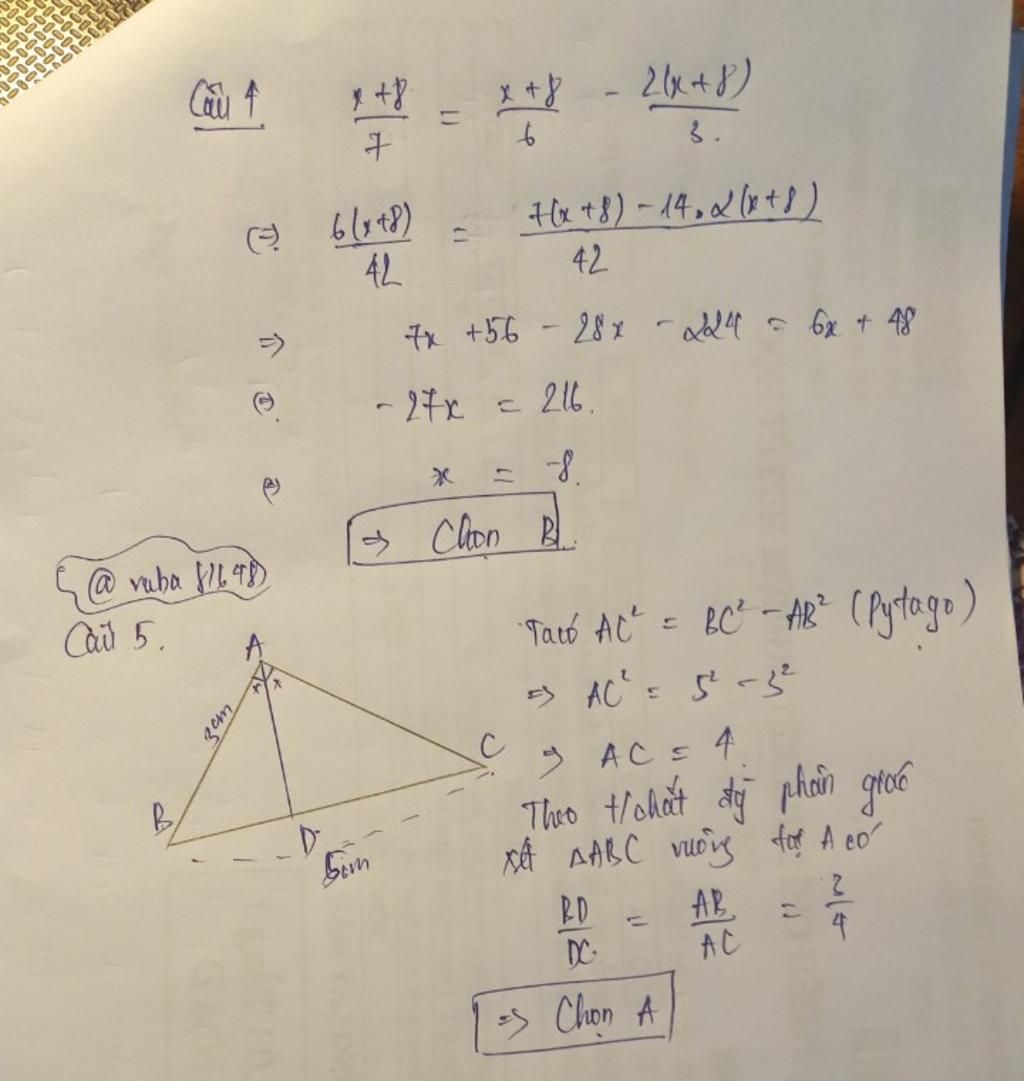 Câu 4 x+8/7 = x+8/6 - 2(x+8)/3.
(=). 6(x+8)/42 = 7(x+8) - 14.2(x+8)/42
=> 7x + 56 - 28x - 224 = 6x + 48
(=). - 27x = 216.
(=) x = -8.
=> Chọn B.
Câu 5.
A
x x
3cm
B
D
C
5cm
Ta có AC² = BC² - AB² (Pytago).
=> AC² = 5² - 3²
=> AC = 4.
Theo t/chất đg phân giác
xét ΔABC vuông tại A có
BD/DC = AB/AC = 3/4
=> Chọn A